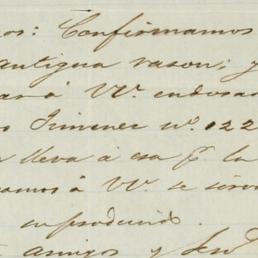 os: Confirmamos
antigua rason; y
asa á VV. endosad
s Jimenez nº. 122
lleva á esa pª la
amos á VV. se sirva
su producido.
amigos y